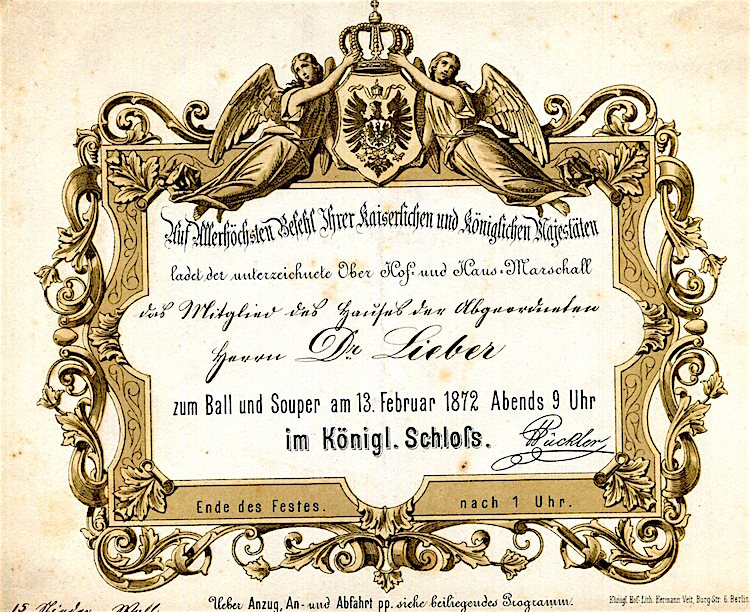 Auf Allerhöchsten Befehl Ihrer Kaiserlichen und Königlichen Majestäten
ladet der unterzeichnete Ober Hof- und Haus-Marschall
das Mitglied des Hauses der Abgeordneten
Herrn Dr. Lieber
zum Ball und Souper am 13. Februar 1872 Abends 9 Uhr
im Königl. Schloſs.
Pückler
Ende des Festes. nach 1 Uhr.
Ueber Anzug, An- und Abfahrt pp. siehe beiliegendes Programm.
Königl. Hof-Lith. Hermann Veit, Burg Str. 6. Berlin
15